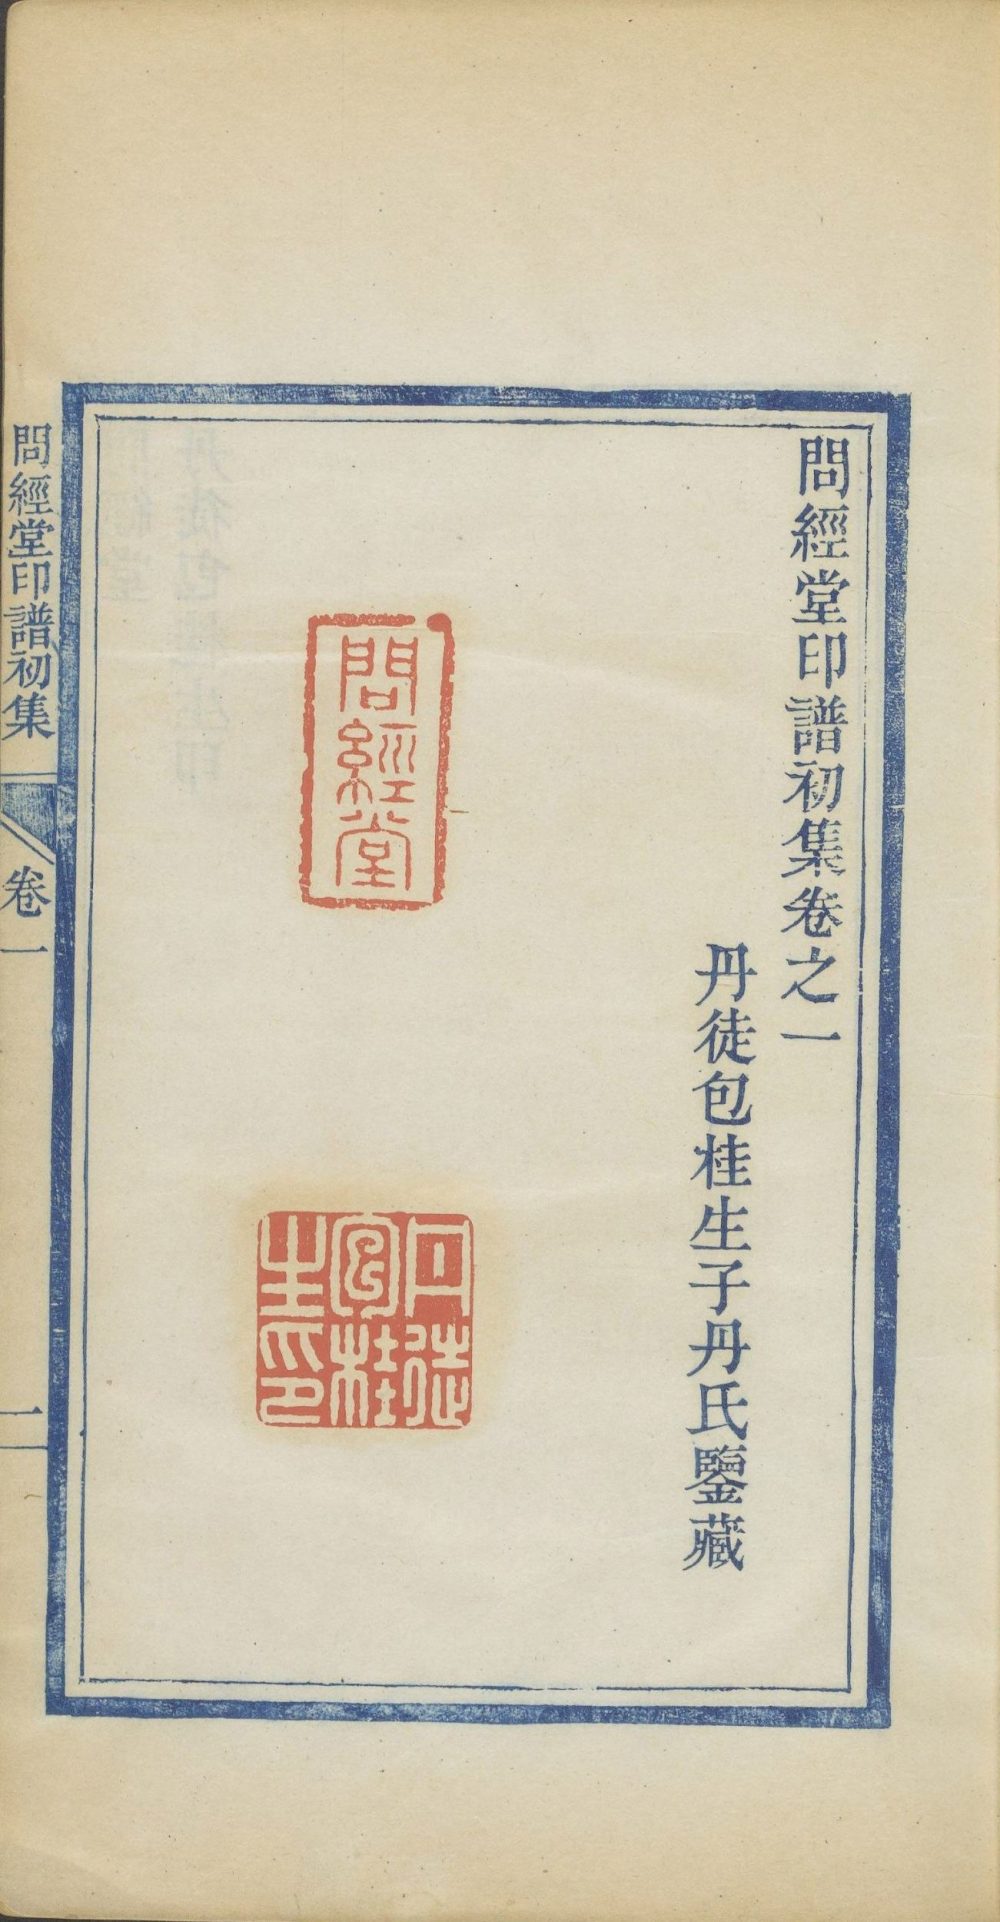 問經堂印譜初集卷之一
丹徒包桂生子丹氏鑒藏
問經堂
丹徒包桂生印
問經堂印譜初集
卷一
一